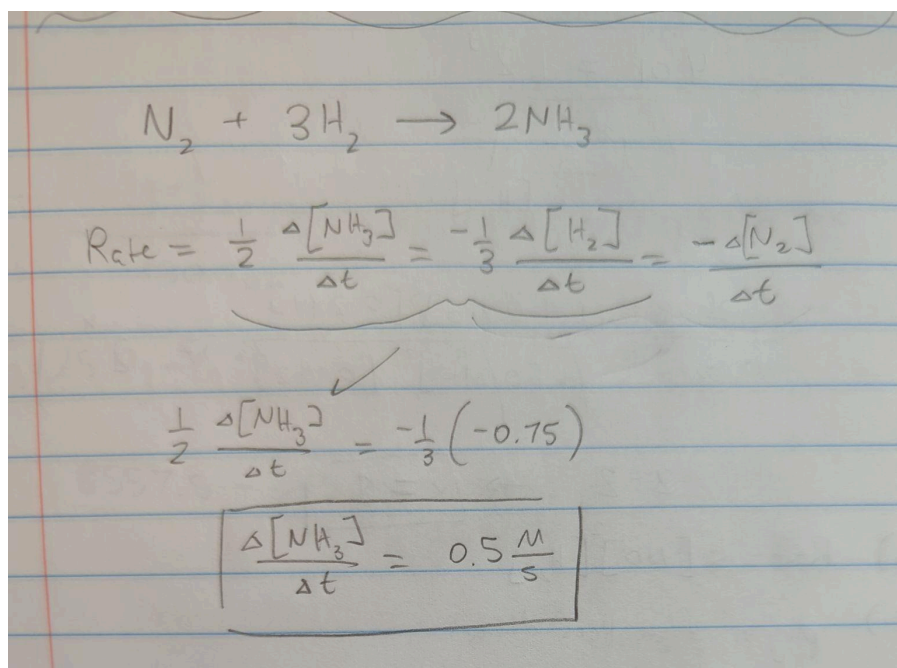 N₂ + 3H₂ → 2NH₃
Rate = 1/2 Δ[NH₃]/Δt = -1/3 Δ[H₂]/Δt = -Δ[N₂]/Δt
1/2 Δ[NH₃]/Δt = -1/3 (-0.75)
Δ[NH₃]/Δt = 0.5 M/s